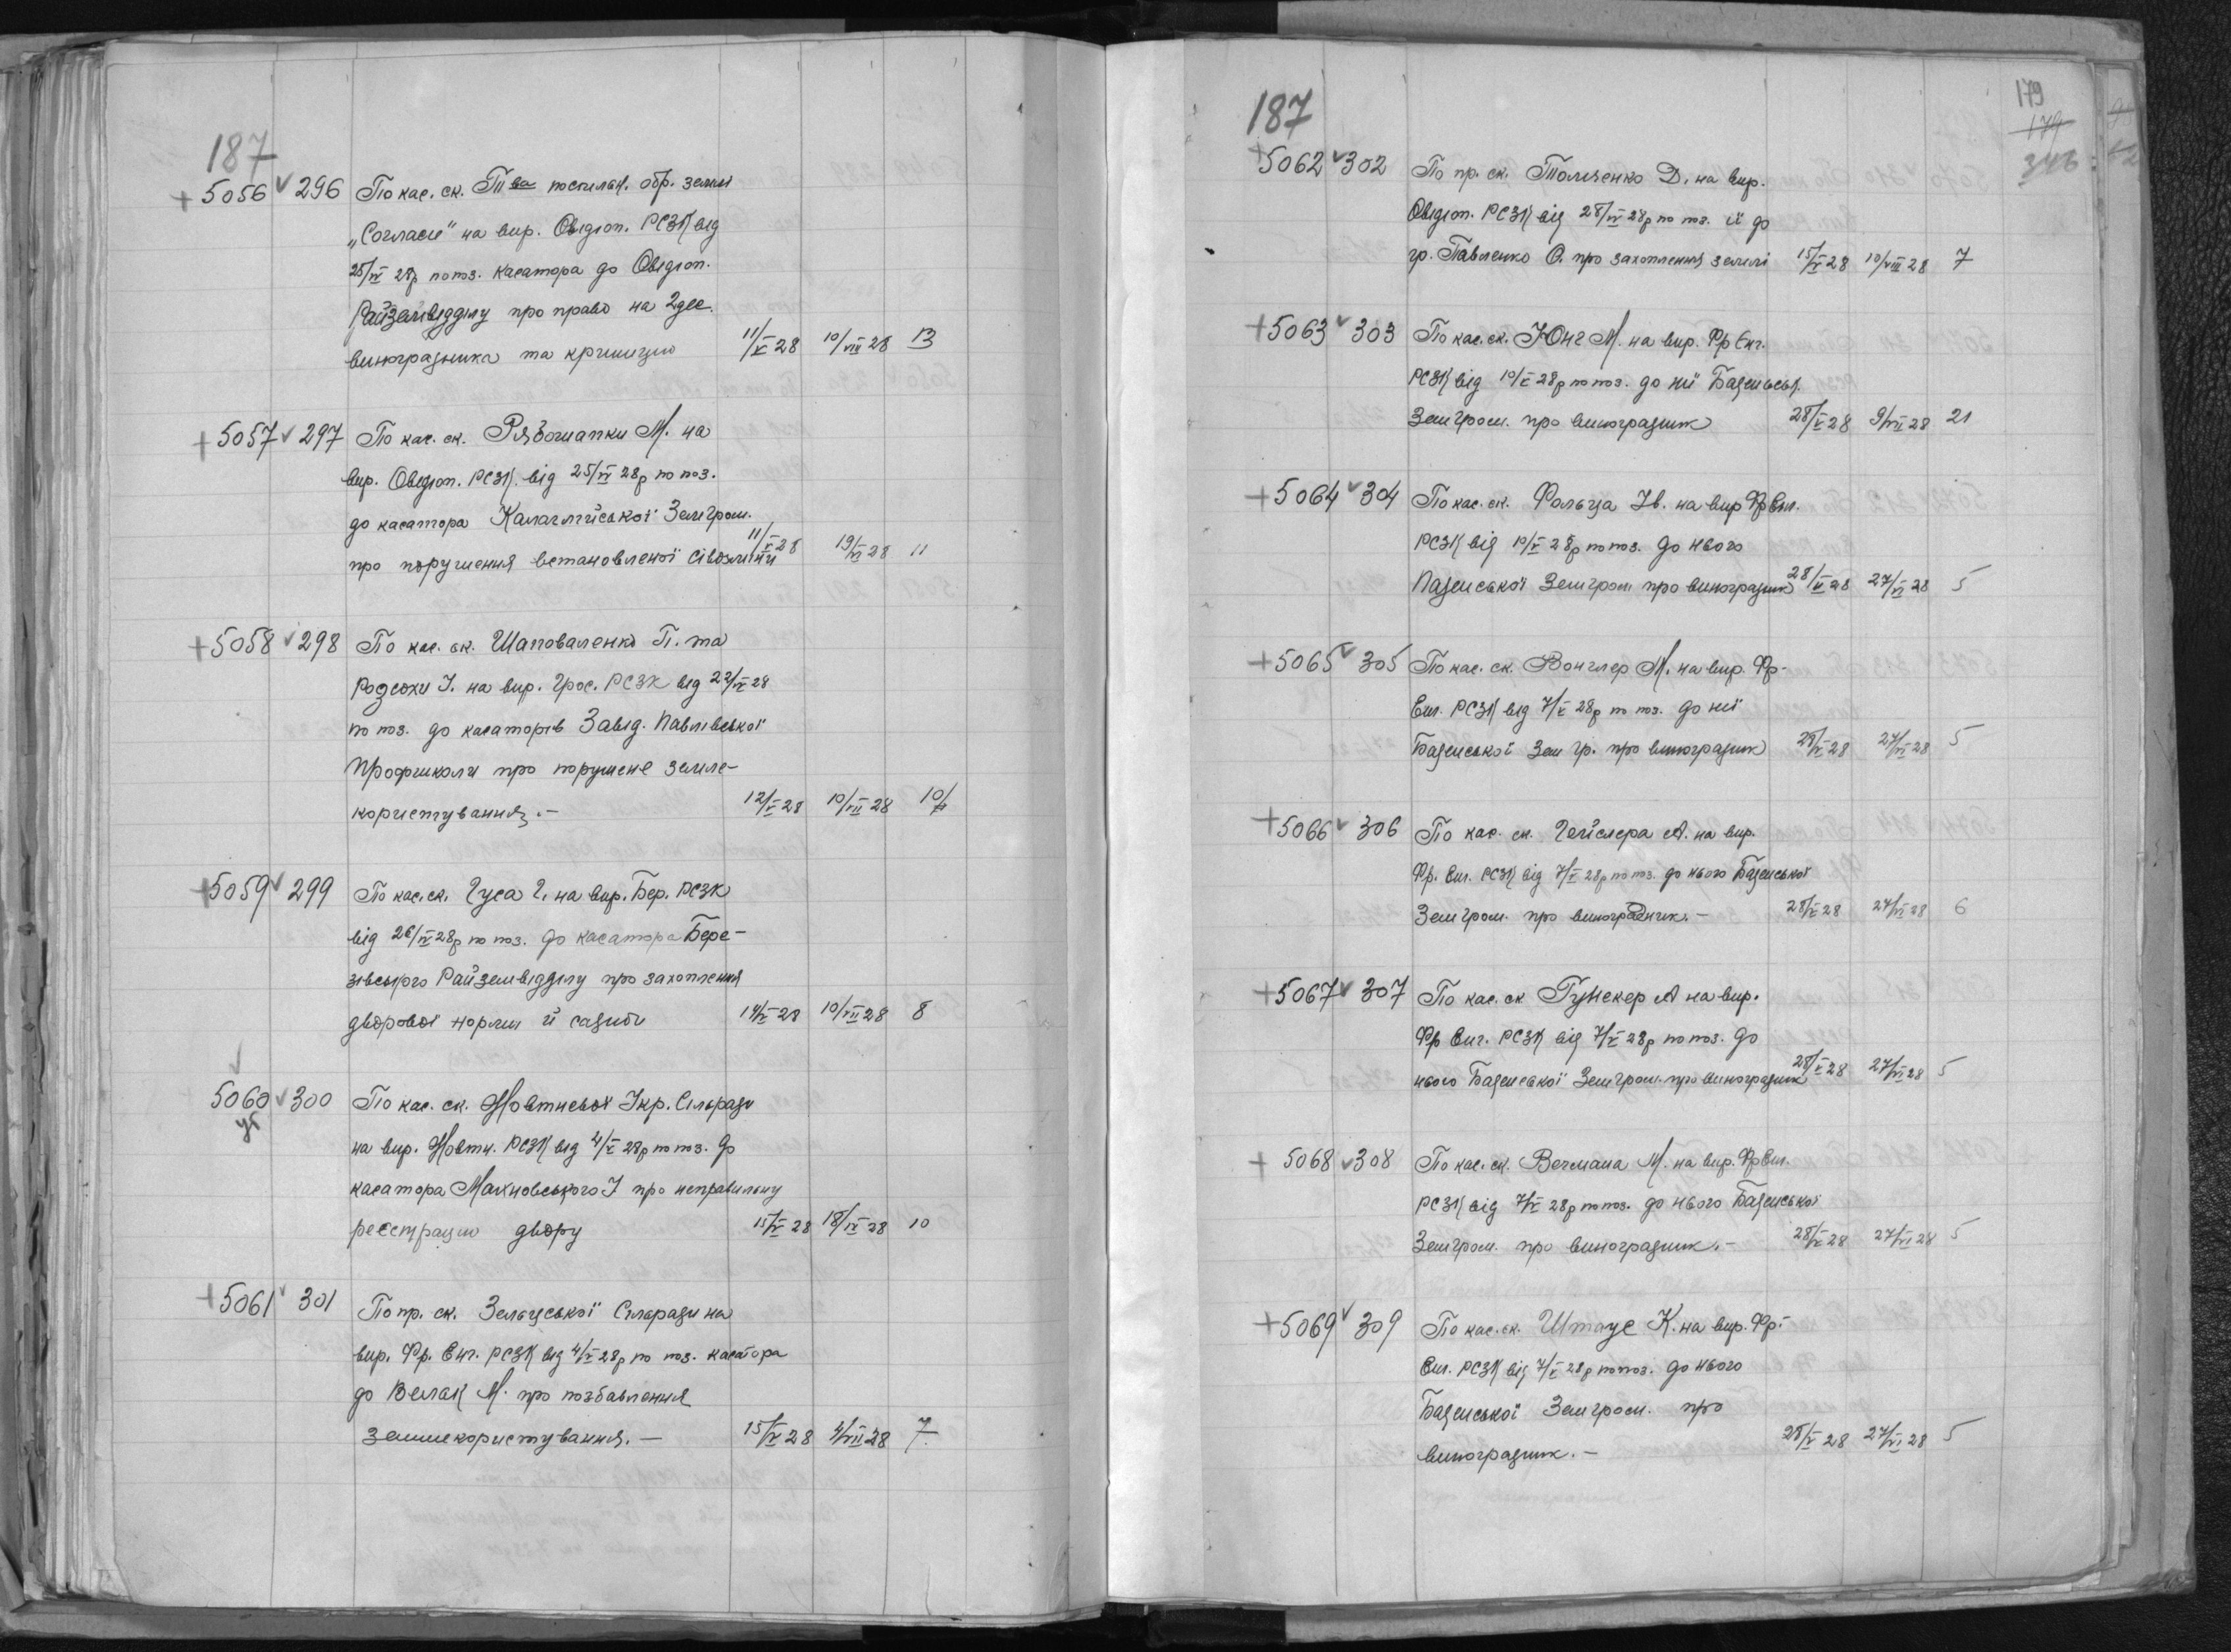 187
+ 5056 ✓ 296 По кас. ск. Т-ва поспильн. обр. землі
„Согласие" на вир. Овидіоп. РСЗК від
25/IV 28р по поз. касатора до Овидіоп.
Райземвідділу про право на 2 дес.
виноградника та криницю 11/V 28 10/VIII 28 13
+ 5057 ✓ 297 По кас. ск. Рябошапки М. на
вир. Овидіоп. РСЗК. від 25/IV 28р по поз.
до касатора Калаглійської Земгром.
про порушення встановленої сівозміни 11/V 28 19/VI 28 11
+ 5058 ✓ 298 По кас. ск. Шаповаленко П. та
Розсохи І. на вир. Грос. РСЗК від 22/IV 28
по поз. до касаторів Завід. Павлівської
Профшколи про порушене земле-
користування. — 12/V 28 10/VII 28 10
+ 5059 ✓ 299 По кас. ск. Гуса Г. на вир. Бер. РСЗК
від 26/IV 28р по поз. до касатора Бере-
зівського Райземвідділу про захоплення
дворової норми й садиби 14/V 28 10/VII 28 8
✓
5060 ✓ 300 По кас. ск. Жовтневої Укр. Сільради
на вир. Жовтн. РСЗК від 4/V 28р по поз. до
касатора Махновського І про неправильну
реєстрацію двору 15/V 28 18/IX 28 10
+ 5061 ✓ 301 По пр. ск. Зельцської Сільради на
вир. Фр. Енг. РСЗК від 4/V 28р по поз. касатора
до Велак М. про позбавлення
землекористування. — 15/V 28 4/VII 28 7
187
179
179
346
+ 5062 ✓ 302 По пр. ск. Толченко Д. на вир.
Овидіоп. РСЗК від 28/IV 28р по поз. її до
гр. Павленко О. про захоплення землі 15/V 28 10/VIII 28 7
+ 5063 ✓ 303 По кас. ск. Юнг М. на вир. Фр Енг.
РСЗК від 10/V 28р по поз. до неї Баденськ.
Земгром. про виноградник 28/V 28 9/VII 28 21
+ 5064 ✓ 304 По кас. ск. Фольца Ів. на вир Фр Енг.
РСЗК від 10/V 28р по поз. до нього
Паденської Земгром про виноградник 28/V 28 27/VI 28 5
+ 5065 ✓ 305 По кас. ск. Вонглер М. на вир. Фр-
Енг. РСЗК від 7/V 28р по поз. до неї
Баденської Зем гр. про виноградник 28/V 28 27/VI 28 5
+ 5066 ✓ 306 По кас. ск. Гейслера А. на вир.
Фр. Енг. РСЗК від 7/V 28р по поз. до нього Баденської
Земгром. про виноградник. — 28/V 28 27/VI 28 6
+ 5067 ✓ 307 По кас. ск Гунекер А на вир.
Фр Енг. РСЗК від 7/V 28р по поз. до
нього Баденської Земгром. про виноградник 28/V 28 27/VI 28 5
+ 5068 ✓ 308 По кас. ск. Вегмана М. на вир. Фр Енг.
РСЗК від 7/V 28р по поз. до нього Баденської
Земгром. про виноградник. — 28/V 28 27/VI 28 5
+ 5069 ✓ 309 По кас. ск. Штауе К. на вир. Фр-
Енг. РСЗК від 7/V 28р по поз. до нього
Баденської Земгром. про
виноградник. — 28/V 28 27/VI 28 5